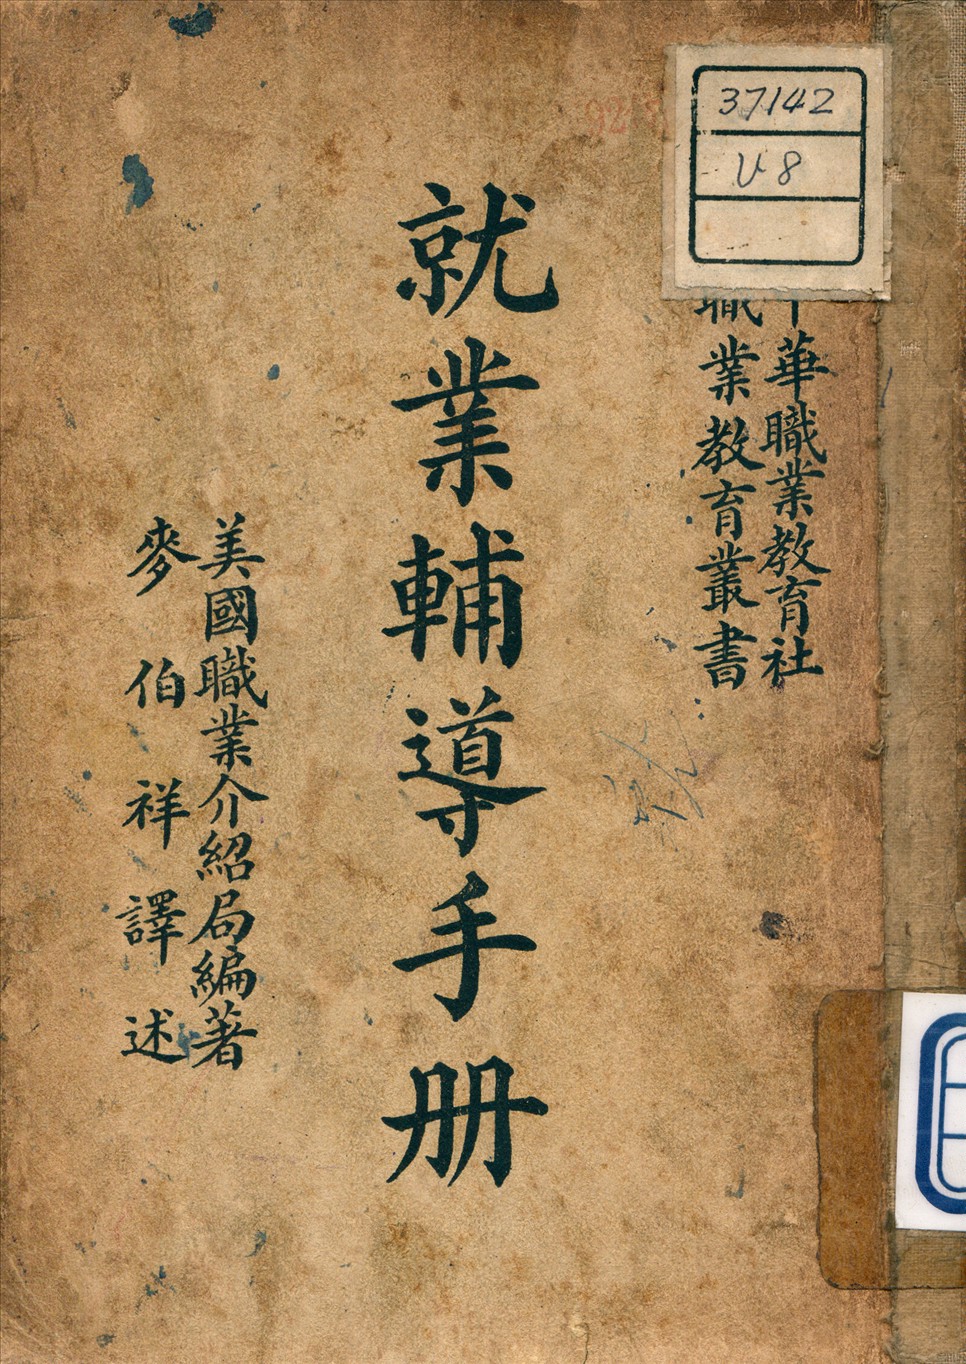 中華職業教育社
職業教育叢書
就業輔導手册
美國職業介紹局編著
麥伯祥譯述
37142
U8